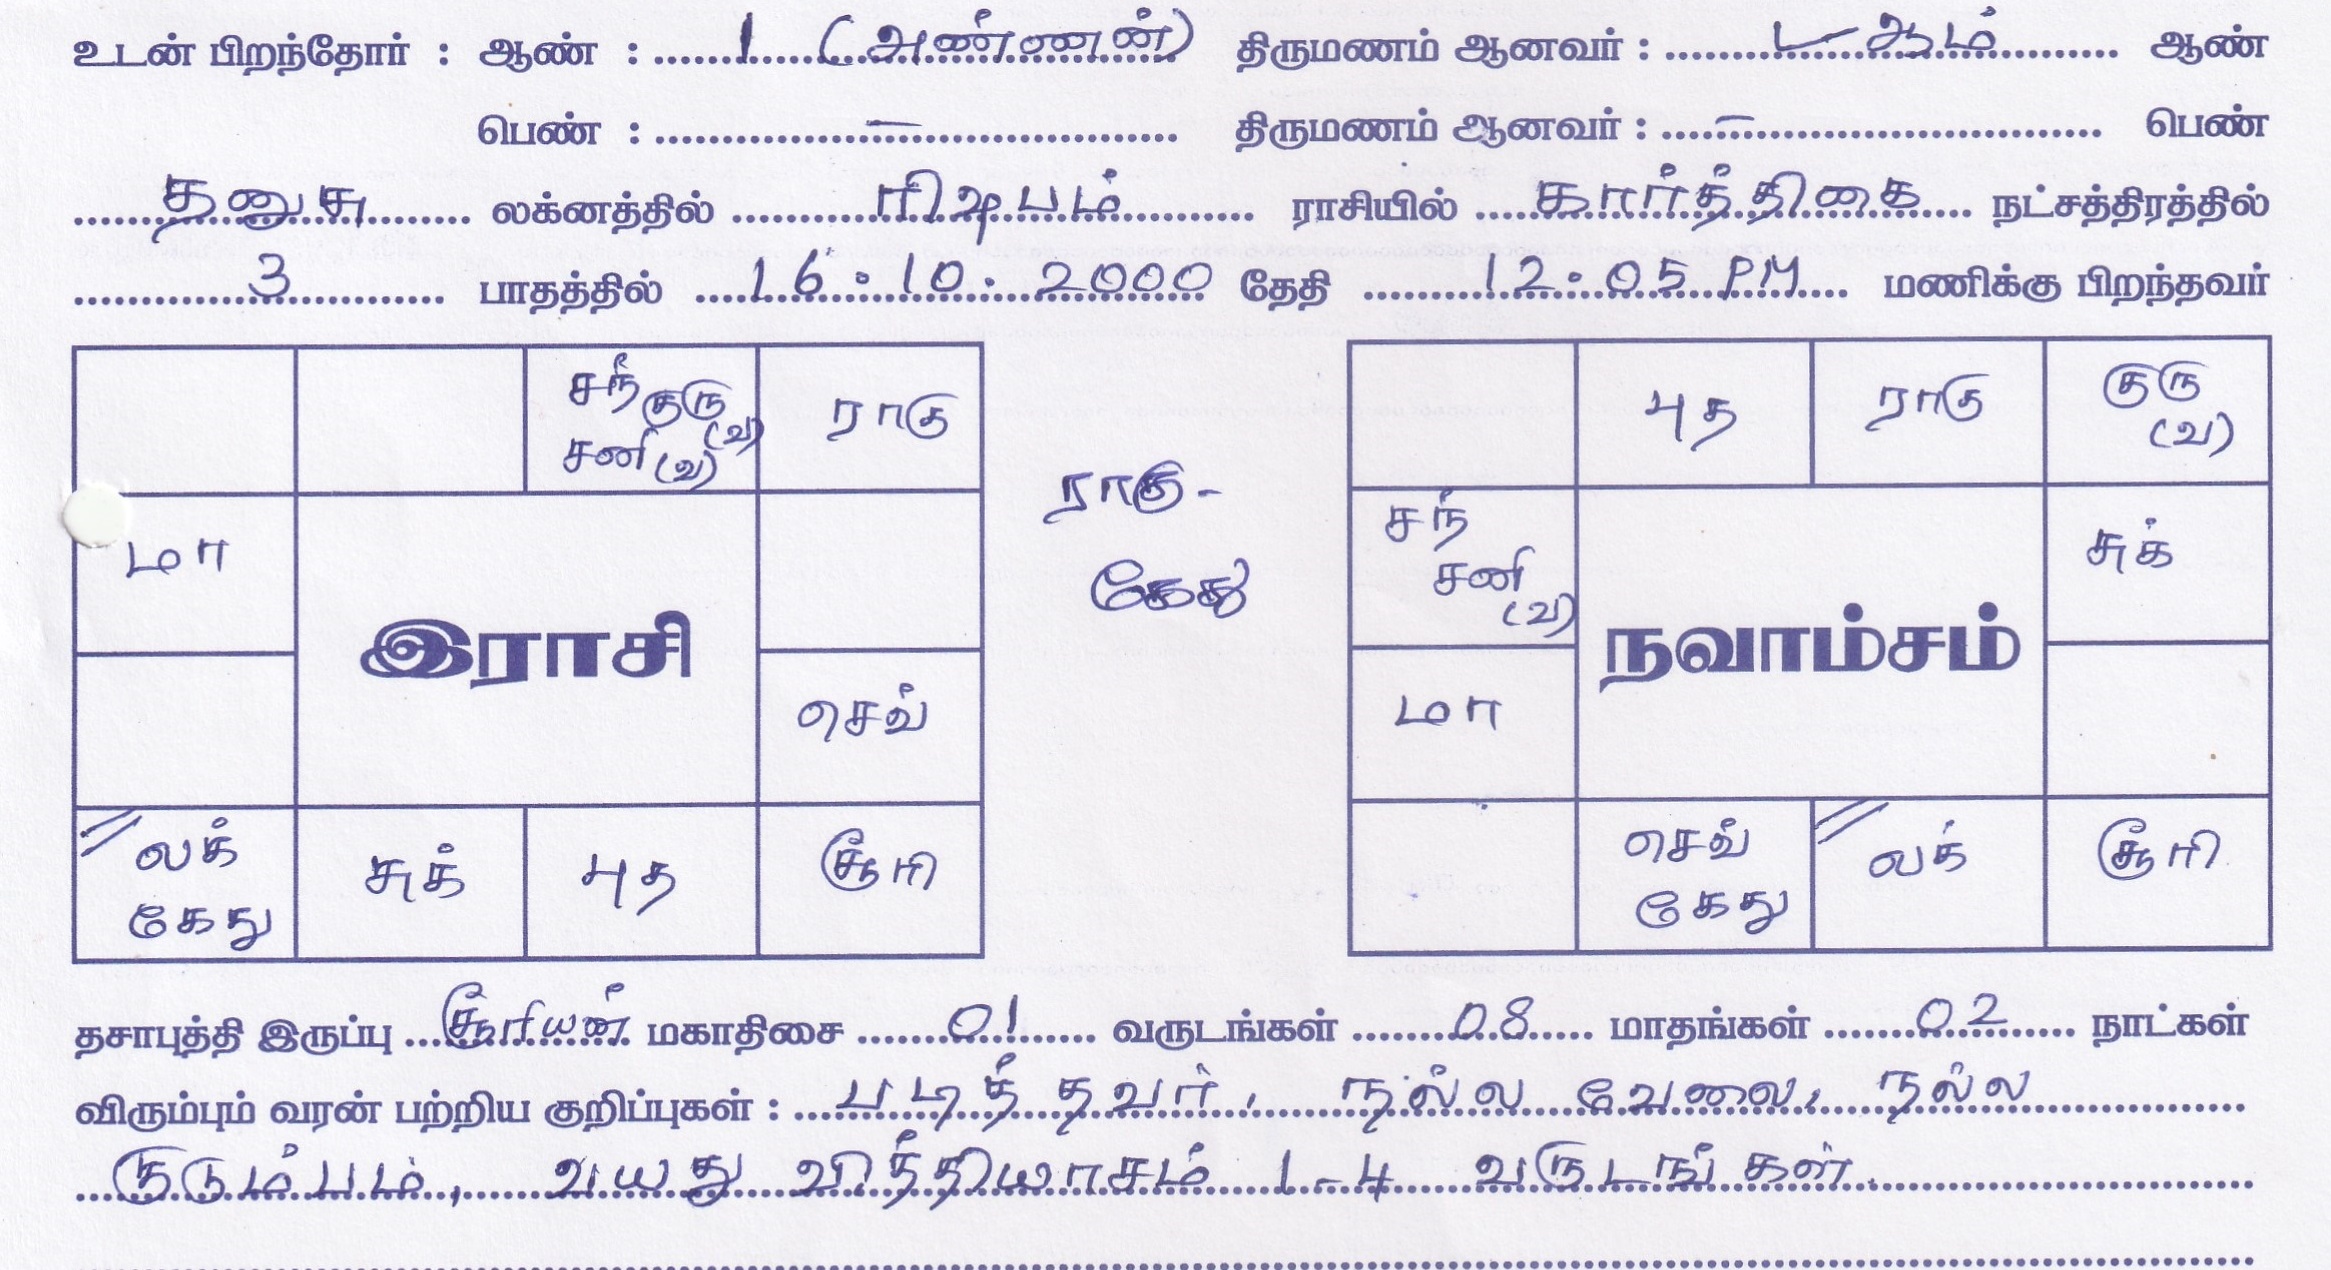 உடன் பிறந்தோர் : ஆண் : 1 (அண்ணன்) திருமணம் ஆனவர் : ஆம் ஆண்
பெண் : – திருமணம் ஆனவர் : – பெண்
தனுசு லக்னத்தில் ரிஷபம் ராசியில் கார்த்திகை நட்சத்திரத்தில்
3 பாதத்தில் 16.10.2000 தேதி 12.05 PM மணிக்கு பிறந்தவர்
சந் குரு (வ) சனி (வ)
ராகு
மா
இராசி
செவ்
லக் கேது
சுக்
புத
சூரி
ராகு-
கேது
புத
ராகு
குரு (வ)
சந் சனி (வ)
சுக்
நவாம்சம்
மா
செவ் கேது
லக்
சூரி
தசாபுத்தி இருப்பு சூரியன் மகாதிசை 01 வருடங்கள் 08 மாதங்கள் 02 நாட்கள்
விரும்பும் வரன் பற்றிய குறிப்புகள் : படித்தவர், நல்ல வேலை, நல்ல
குடும்பம், வயது வித்தியாசம் 1-4 வருடங்கள்.